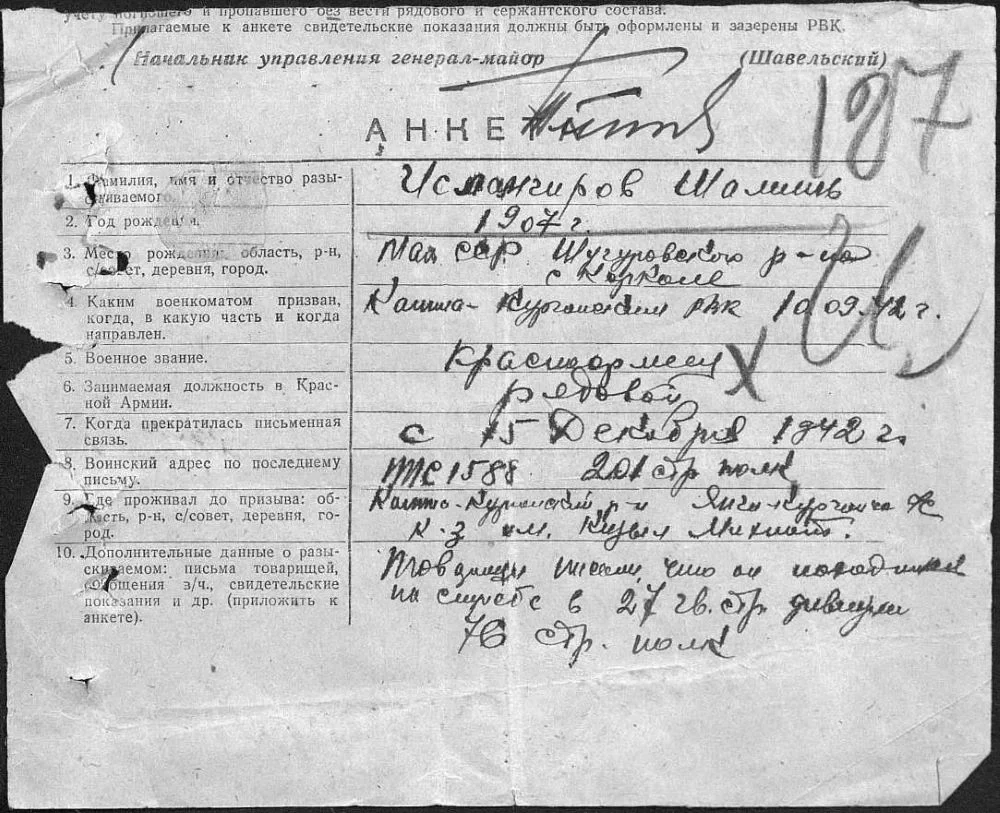 учету погибшего и пропавшего без вести рядового и сержантского состава.
Прилагаемые к анкете свидетельские показания должны быть оформлены и заверены РВК.
Начальник управления генерал-майор (Шавельский)
187
АНКЕТА
1. Фамилия, имя и отчество разыскиваемого.
2. Год рождения.
1907 г.
3. Место рождения: область, р-н, с/совет, деревня, город.
ССР Шугуровского р-на
4. Каким военкоматом призван, когда, в какую часть и когда направлен.
Катта-Курганским РВК 10.09.42 г.
5. Военное звание.
Красноармеец
6. Занимаемая должность в Красной Армии.
рядовой
7. Когда прекратилась письменная связь.
с 15 Декабря 1942 г.
8. Воинский адрес по последнему письму.
ППС 1588 201 стр полк
9. Где проживал до призыва: область, р-н, с/совет, деревня, город.
Катта-Курганский р-н
К-з им. Кизыл
10. Дополнительные данные о разыскиваемом: письма товарищей, сообщения в/ч., свидетельские показания и др. (приложить к анкете).
что он находился
на службе в 27 гв. стр. дивизии
76 стр. полк